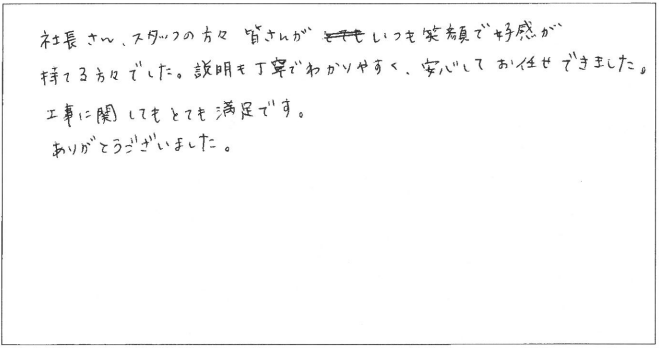 社長さん、スタッフの方々 皆さんが とても いつも笑顔で好感が
持てる方々でした。説明も丁寧でわかりやすく、安心してお任せできました。
工事に関してもとても満足です。
ありがとうございました。